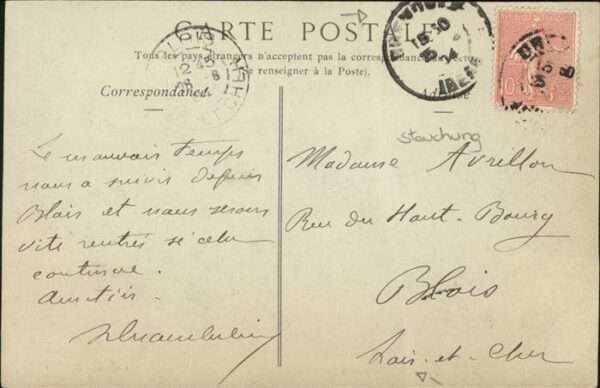 CARTE POSTALE
Tous les pays étrangers n'acceptent pas la correspondance
se renseigner à la Poste).
Correspondance
Adresse
Stauchung
Le mauvais temps
nous a suivis depuis
Blois et nous serons
vite rentrés si cela
continue.
Amitiés.
Madame Avrillon
Rue du Haut-Bourg
Blois
Loir-et-Cher
10